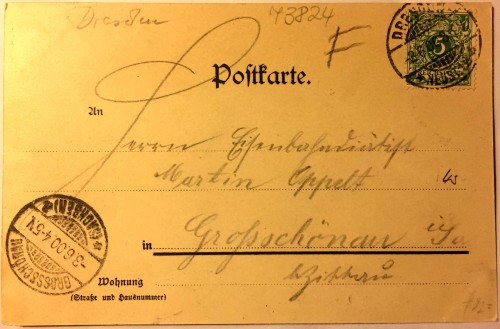 Dresden
73824
F
5
Postkarte.
An
Herrn Eisenbahndiätist
Martin Oppelt
in Großschönau i/Sa
b. Zittau
GROSSSCHÖNAU
-3.6.00.4-5N.
(SACHSEN)
Wohnung
(Straße und Hausnummer)